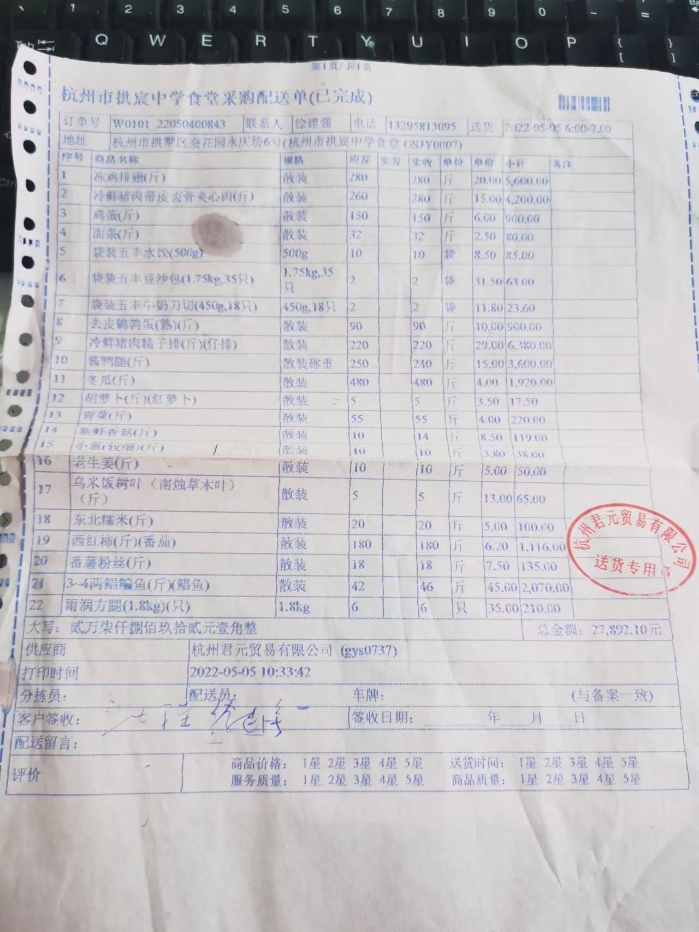 第1页/共1页
杭州市拱宸中学食堂采购配送单(已完成)
订单号 W0101_22050400843 联系人 徐建强 电话 13295813095 送货 2022-05-05 6:00-7:00
地址 杭州市拱墅区杂花园永庆坊6号(杭州市拱宸中学食堂 GSJY0007)
序号 商品名称 规格 应发 实发 实收 单位 单价 小计 备注
1 冻鸡排翅(斤) 散装 280 280 斤 20.00 5,600.00
2 冷鲜猪肉带皮去骨夹心肉(斤) 散装 260 280 斤 15.00 4,200.00
3 鸡蛋(斤) 散装 150 150 斤 6.00 900.00
4 面条(斤) 散装 32 32 斤 2.50 80.00
5 袋装五丰水饺(500g) 500g 10 10 袋 8.50 85.00
6 袋装五丰豆沙包(1.75kg,35只) 1.75kg,35只 2 2 袋 31.50 63.00
7 袋装五丰牛奶刀切(450g,18只) 450g,18只 2 2 袋 11.80 23.60
8 去皮鹌鹑蛋(熟)(斤) 散装 90 90 斤 10.00 900.00
9 冷鲜猪肉精子排(斤)(仔排) 散装 220 220 斤 29.00 6,380.00
10 酱鸭腿(斤) 散装称重 250 240 斤 15.00 3,600.00
11 冬瓜(斤) 散装 480 480 斤 4.00 1,920.00
12 胡萝卜(斤)(红萝卜) 散装 5 5 斤 3.50 17.50
13 青菜(斤) 散装 55 55 斤 4.00 220.00
14 新鲜香菇(斤) 散装 10 14 斤 8.50 119.00
15 小葱(斤) 散装 10 10 斤 3.80 38.00
16 老生姜(斤) 散装 10 10 斤 5.00 50.00
17 乌米饭树叶（南烛草木叶）(斤) 散装 5 5 斤 13.00 65.00
18 东北糯米(斤) 散装 20 20 斤 5.00 100.00
19 西红柿(斤)(番茄) 散装 180 180 斤 6.20 1,116.00
20 番薯粉丝(斤) 散装 18 18 斤 7.50 135.00
21 3-4两鲳鳊鱼(斤)(鲳鱼) 散装 42 46 斤 45.00 2,070.00
22 雨润方腿(1.8kg)(只) 1.8kg 6 6 只 35.00 210.00
大写: 贰万柒仟捌佰玖拾贰元壹角整 总金额: 27,892.10元
供应商 杭州君元贸易有限公司 (gys0737)
打印时间 2022-05-05 10:33:42
分拣员: 配送员: 车牌: (与备案一致)
客户签收: 签收日期: 年 月 日
配送留言:
评价 商品价格: 1星 2星 3星 4星 5星 送货时间: 1星 2星 3星 4星 5星
服务质量: 1星 2星 3星 4星 5星 商品质量: 1星 2星 3星 4星 5星
杭州君元贸易有限公司
送货专用章